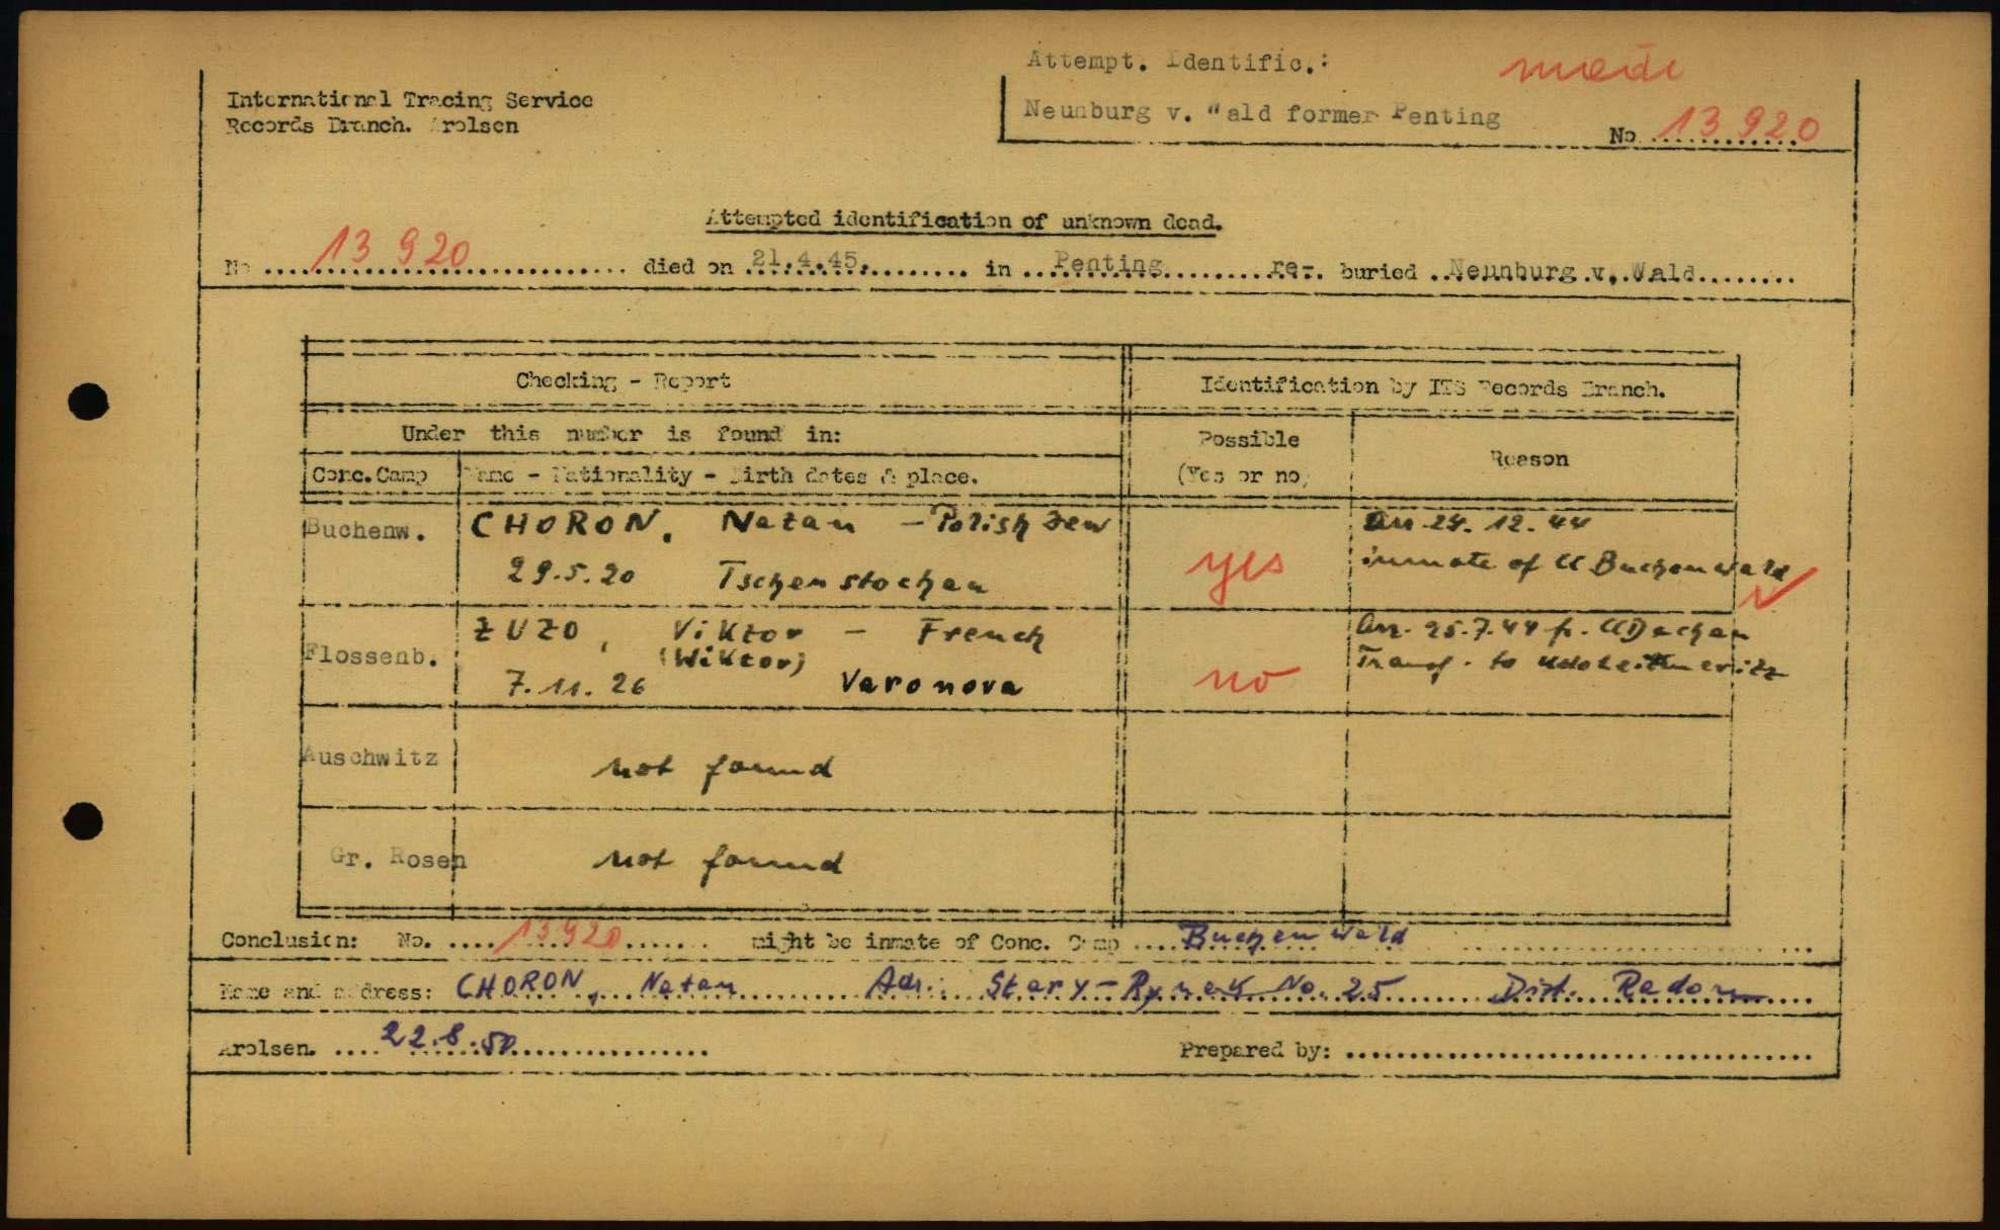 Attempt. Identific.:
International Tracing Service
Records Branch. Arolsen
Neunburg v. Wald former Penting
No 13 920
Attempted identification of unknown dead.
No 13 920 died on 21.4.45. in Penting re- buried Neunburg v. Wald
Checking - Report
Identification by ITS Records Branch.
Under this number is found in:
Possible (Yes or no)
Reason
Conc. Camp
Name - Nationality - Birth dates & place.
Buchenw.
CHORON, Natan - Polish Jew
29.5.20 Tschenstochau
yes
Arr. 24. 12. 44
inmate of CC Buchenwald
Flossenb.
ZUZO, Viktor - French
(Wiktor)
7.11.26 Varonova
no
Arr. 25.7.44 fr. CC Dachau
Transf. to Leitmeritz
Auschwitz
not found
Gr. Rosen
not found
Conclusion: No. 13920 might be inmate of Conc. Camp Buchenwald
Name and address: CHORON, Natan Adr.: Stary-Rynek No. 25 Dist. Radom
Arolsen. 22.8.50
Prepared by: